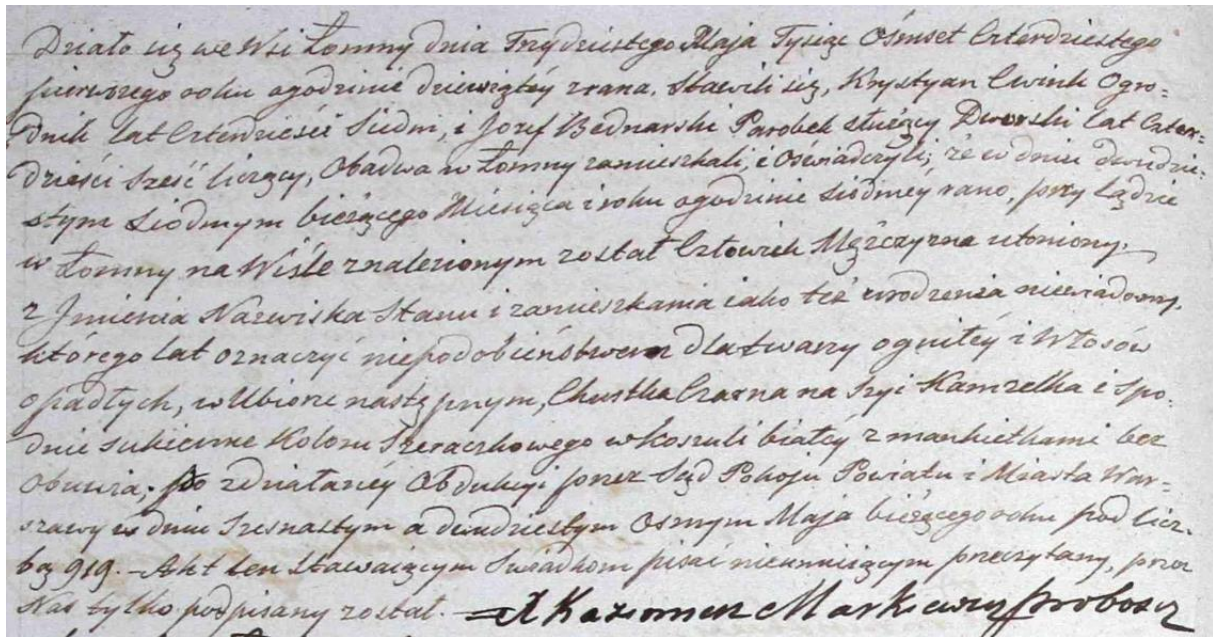 Działo się we Wsi Łomny dnia Trzydziestego Maja Tysiąc Ośmset Czterdziestego
pierwszego roku ogodzinie dziewiątéy zrana. Stawili się, Krystyan Cwink Ogro=
dnik lat Czterdzieści Siedm, i Jozef Bednarski Parobek służący Dworski lat Czter=
dzieści sześć liczący, Obadwa w Łomny zamieszkali, i Oświadczyli; że w dniu dwudzie=
stym Siódmym bieżącego Miesiąca i roku ogodzinie siódméy rano, przy Lądzie
w Łomny na Wiśle znalezionym został Człowiek Męźczyzna utoniony,
z Jmienia Nazwiska Stanu i zamieszkania iako też urodzenia niewiadomy,
którego lat oznaczyć niepodobieństwem dla twarzy ogniłéy i Włósów
opadłych, w Ubiorze następnym, Chustka Czarna na szyi Kamzelka i spo=
dnie sukienne Koloru Szeraczkowego w koszuli białéy z mankietkami bez
Obuwia; po zdziałanéy Obdukcyi przez Sąd Pokoju Powiatu i Miasta War=
szawy w dniu Szesnastym a dwudziestym Osmym Maja bieżącego roku pod licz=
bą 919. – Akt ten Stawaiącym Swiadkom pisać nieumiejącym przeczytany, przez
Nas tylko podpisany został. — X Kazimierz Markiewicz proboszcz